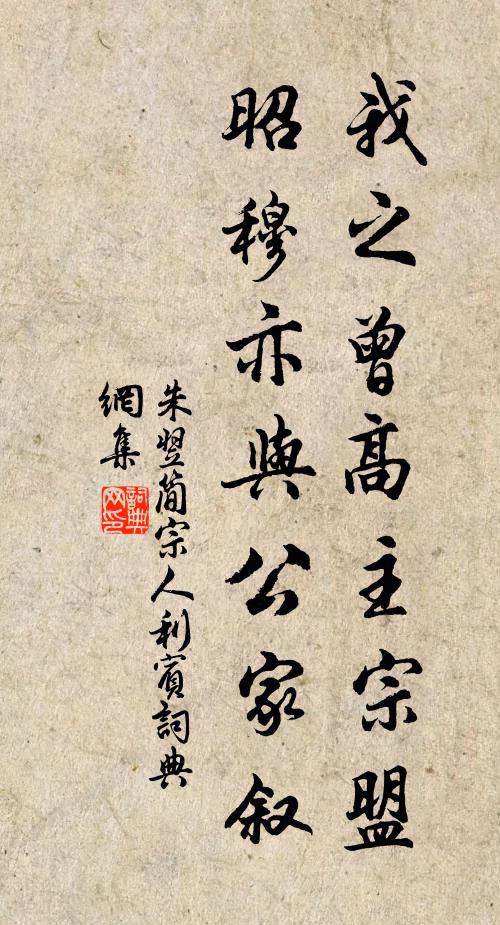 我之曾高主宗盟
昭穆亦與公家叙
朱翌簡宗人利賓詞典
網集
詞典
网印